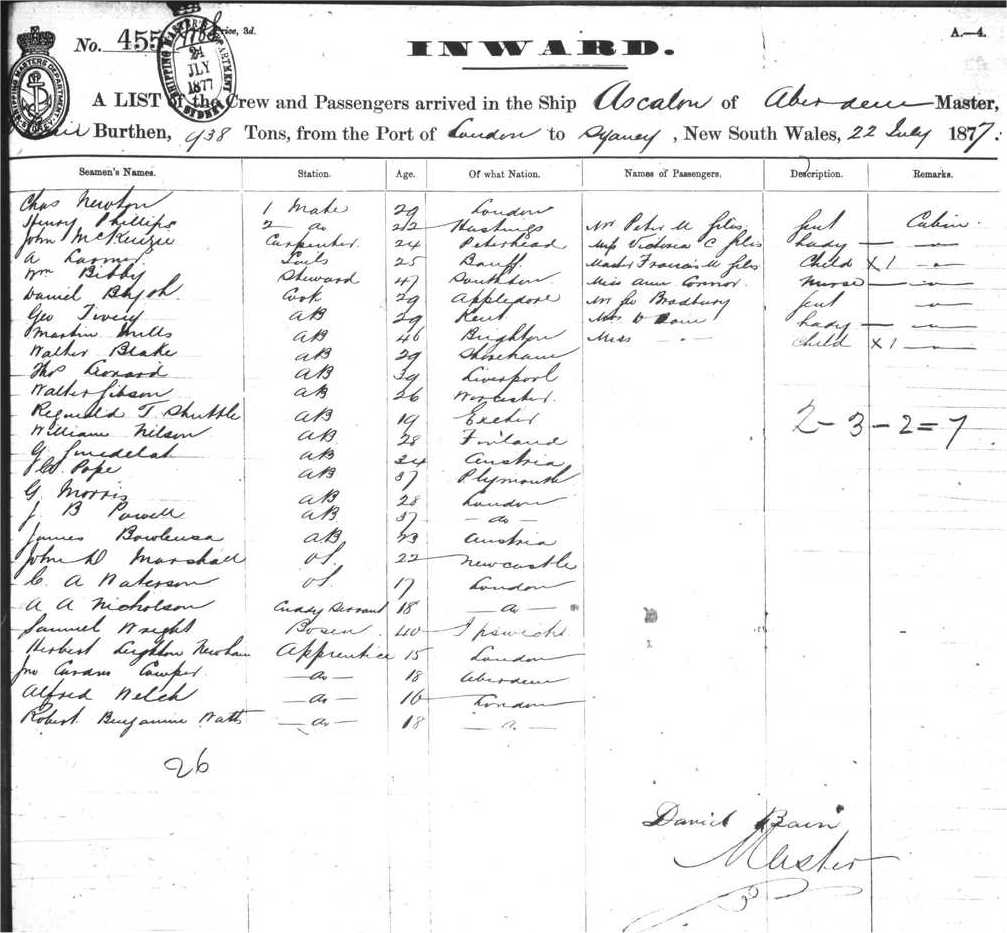 No. 455 Price, 3d. A.—4.
SHIPPING MASTER'S DEPARTMENT 24 JLY 1877 SYDNEY
INWARD.
A LIST of the Crew and Passengers arrived in the Ship Ascalon of Aberdeen Master,
Burthen, 938 Tons, from the Port of London to Sydney, New South Wales, 22 July 1877.
Seamen's Names. Station. Age. Of what Nation. Names of Passengers. Description. Remarks.
Chas Newton 1 Mate 29 London
Henry Phillips 2 do 22 Hastings Mr Peter M Giles Gent Cabin
John McKenzie Carpenter 24 Peterhead Miss Victoria C Giles Lady — —
A Larmer Sails 25 Banff Master Francis M Giles Child X 1 —
Wm Bibby Steward 47 Southton Miss Ann Connor Nurse — —
Daniel Cook 29 Appledore Mr Geo Bradbury Gent —
Geo AB 29 Kent Mrs Do Lady — —
Martin Mills AB 46 Brighton Miss — Child X 1 —
Walter Blake AB 29 Shoreham
Thos Leonard AB 39 Liverpool
Walter Gibson AB 26 Worcester
Reginald T. Shuttle AB 19 Exeter
2 - 3 - 2 = 7
William Nilson AB 28 Finland
G AB 34 Austria
Pope AB 37 Plymouth
G Morris AB 28 London
J B Powell AB 37 — do —
James AB 23 Austria
John D Marshall OS 22 Newcastle
C A Waterson OS 17 London
A A Nicholson Cuddy Servant 18 — do —
Samuel Wright Bosen 40 Ipswich
Herbert Leighton Newham Apprentice 15 London
Jno Cowper — do — 18 Aberdeen
Alfred Welch — do — 16 London
Robert Benjamine Watts — do — 18 — do —
26
David Bain
Master